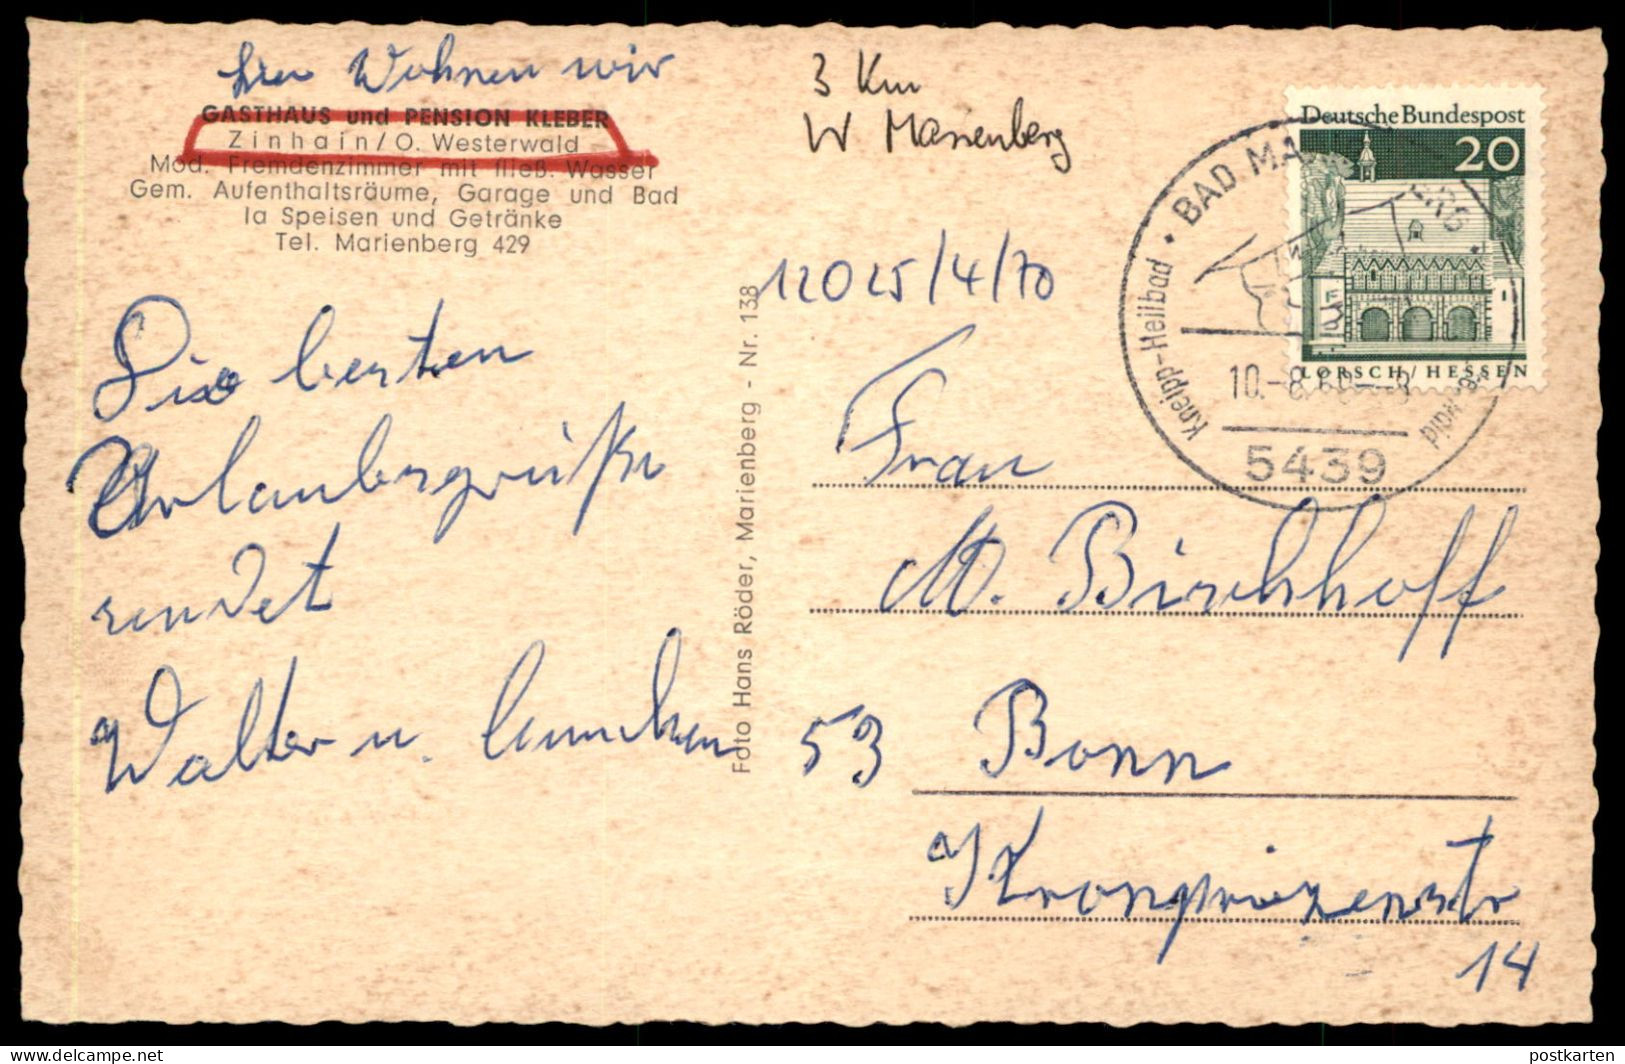 hier Wohnen wir
GASTHAUS und PENSION KLEBER
Zinhain/O. Westerwald
Mod. Fremdenzimmer mit fließ. Wasser
Gem. Aufenthaltsräume, Garage und Bad
Ia Speisen und Getränke
Tel. Marienberg 429
Die besten
Urlaubsgrüße
sendet
Walter u. Ännchen
Foto Hans Röder, Marienberg - Nr. 138
3 Km
W Marienberg
12025/4/70
Deutsche Bundespost
20
LORSCH/HESSEN
BAD MA ERG
Kneipp-Heilbad
10.-8.69.--8
5439
Frau
M. Birkhoff
53 Bonn
Kronprinzenstr
14
postkarten